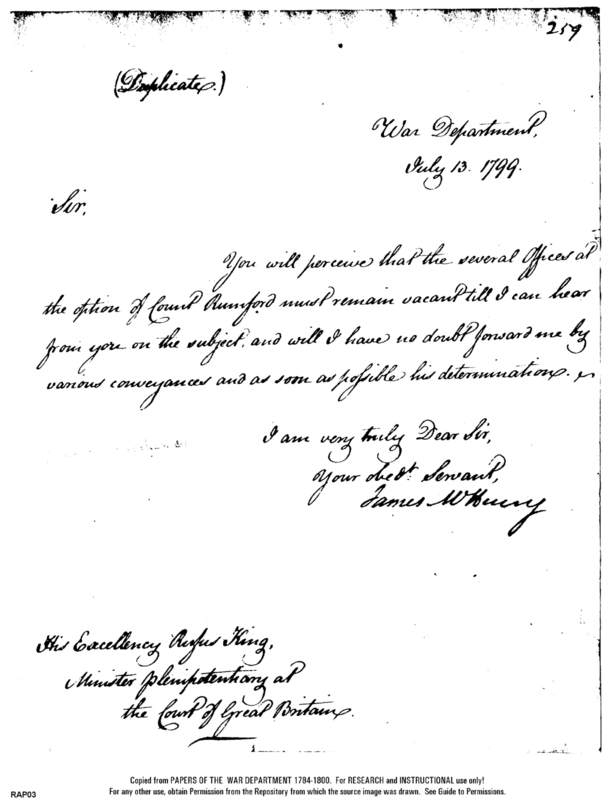 259
(Duplicate.)
War Department,
July 13. 1799.
Sir,
You will perceive that the several Offices at
the option of Count Rumford must remain vacant till I can hear
from you on the subject, and will I have no doubt forward me by
various conveyances and as soon as possible his determination.
I am very truly Dear Sir,
Your obedt. Servant,
James McHenry
His Excellency Rufus King,
Minister plenipotentiary at
the Court of Great Britain.
Copied from PAPERS OF THE WAR DEPARTMENT 1784-1800. For RESEARCH and INSTRUCTIONAL use only!
RAP03 For any other use, obtain Permission from the Repository from which the source image was drawn. See Guide to Permissions.